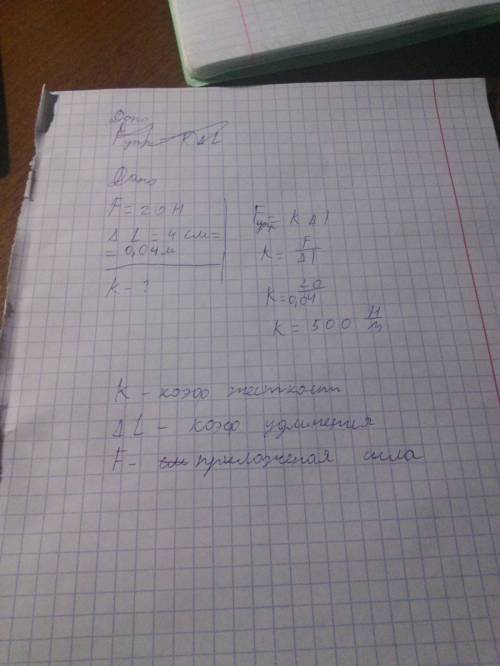 Дано
Fупр = K Δl
Дано
F = 20 Н
Δ L = 4 см =
= 0,04 м
K - ?
Fупр = K Δl
K = F/Δl
K = 20/0,04
K = 500 Н/m
K - коэф жесткост
Δ L - коэф удлинения
F - приложеная сила